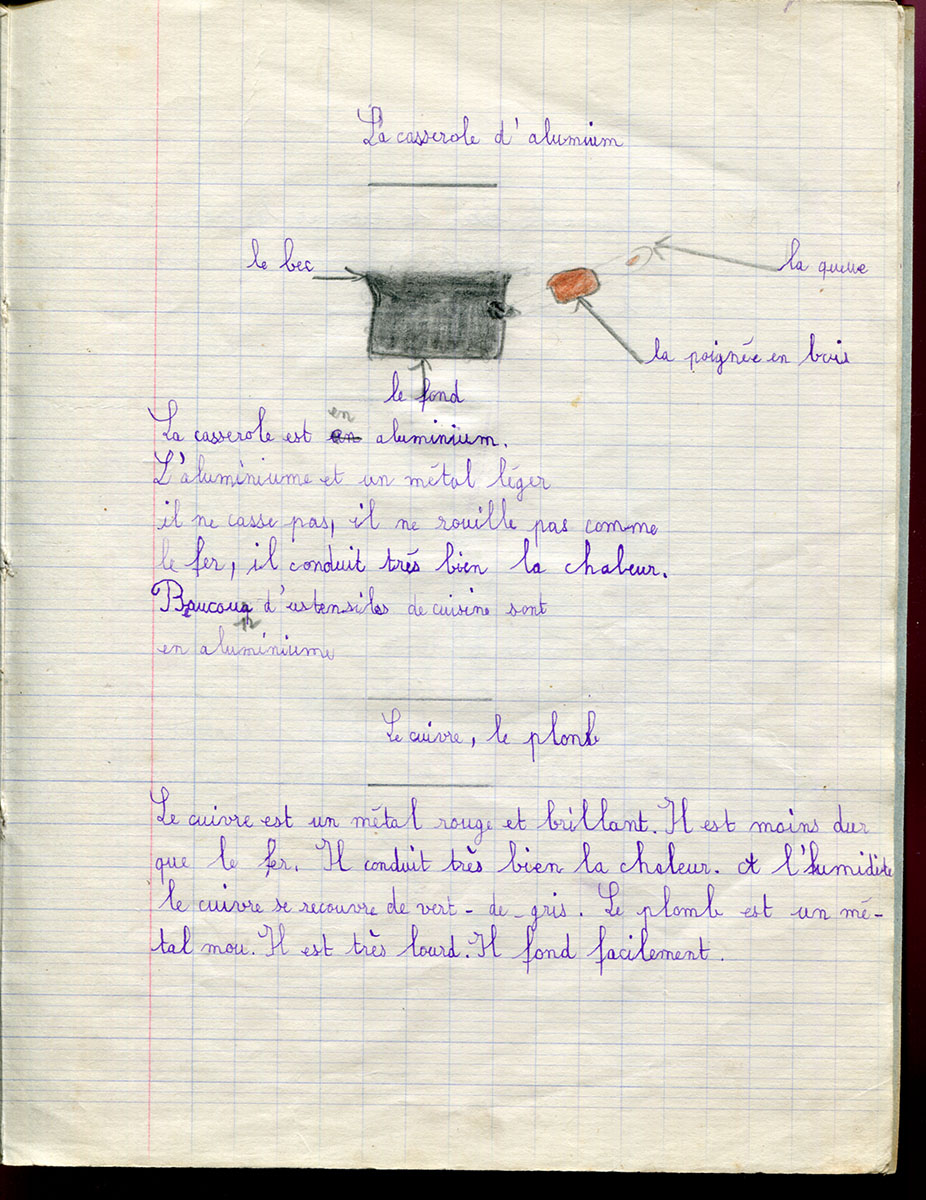 La casserole d'alumium
le bec
la queue
la poignée en bois
le fond
en
La casserole est an aluminium.
L'aluminiume et un métal léger
il ne casse pas, il ne rouille pas comme
le fer, il conduit trés bien la chaleur.
Beaucouq d'ustensiles de cuisine sont
p
en aluminiume
Le cuivre, le plomb
Le cuivre est un métal rouge et brillant. Il est moins dur
que le fer. Il conduit très bien la chaleur. A l'humidité
le cuivre se recouvre de vert-de-gris. Le plomb est un mé-
tal mou. Il est très lourd. Il fond facilement.